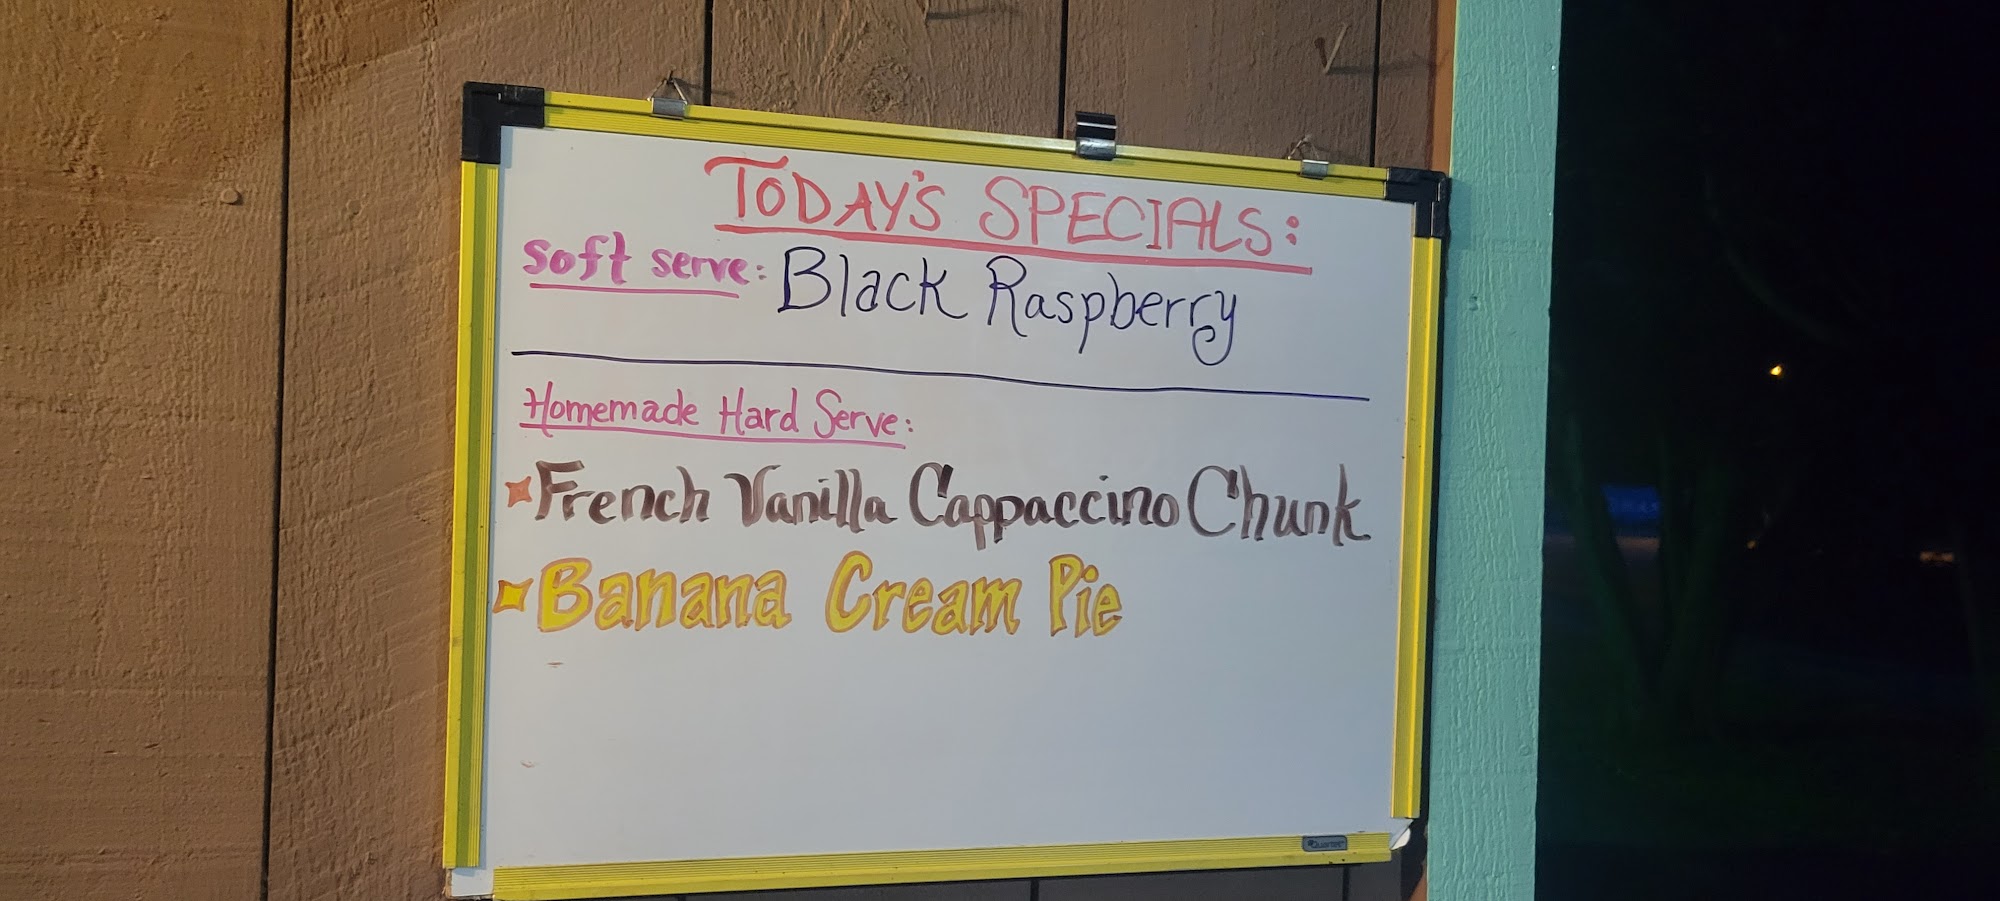 TODAY'S SPECIALS:
Soft serve: Black Raspberry
Homemade Hard Serve:
French Vanilla Cappaccino Chunk
Banana Cream Pie
Quartet